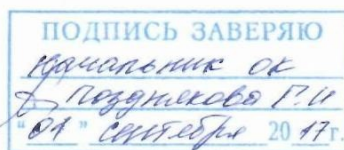 ПОДПИСЬ ЗАВЕРЯЮ
Начальник ОК
Позднякова Г.И
"01" сентября 2017г.